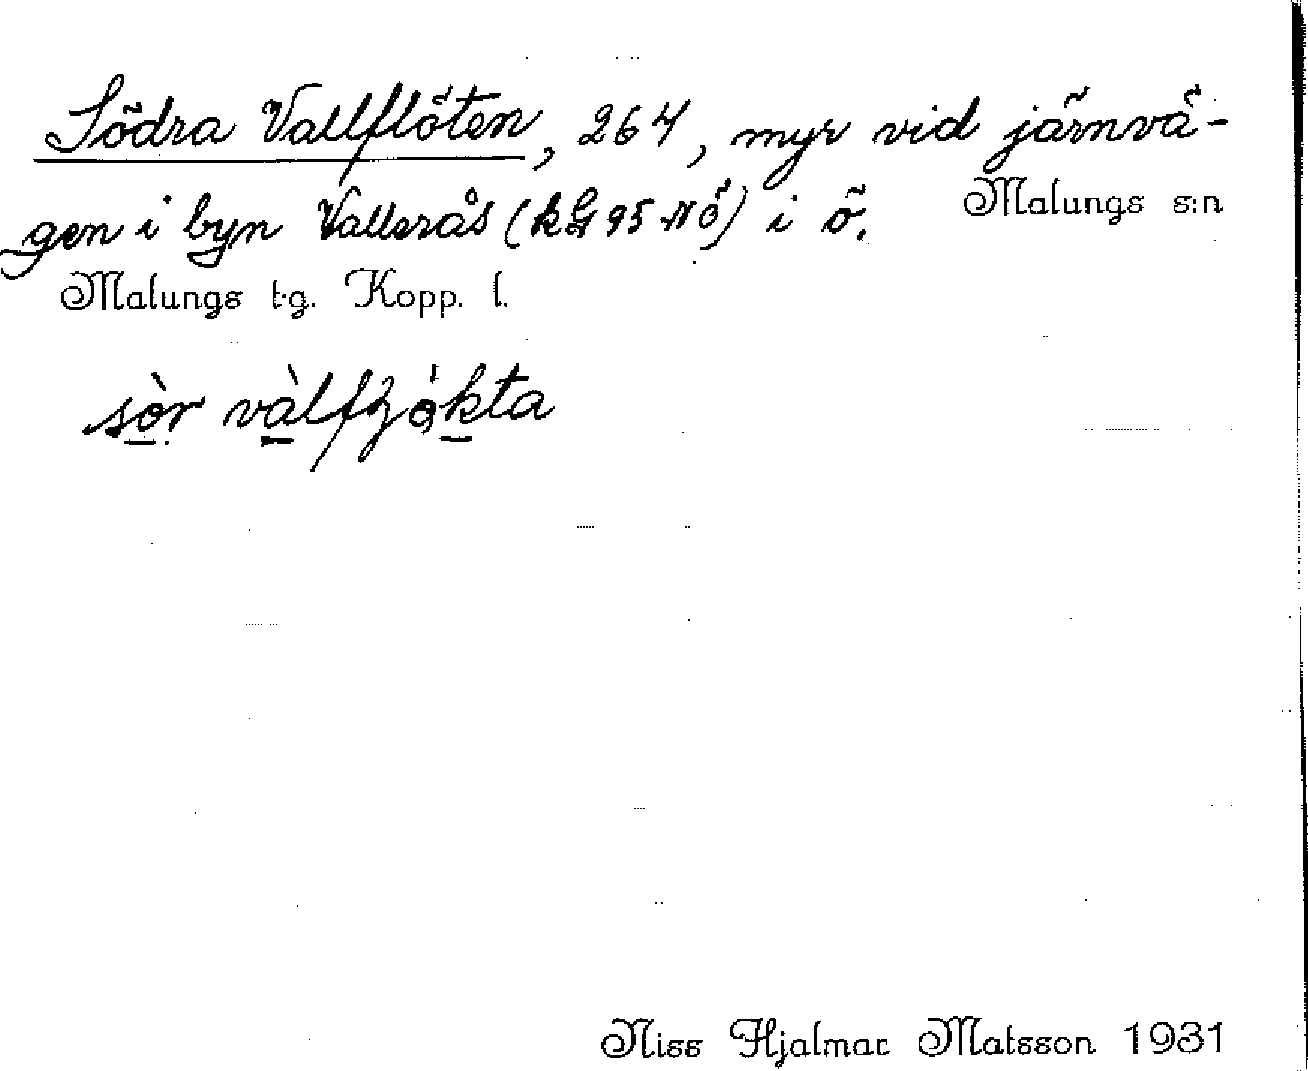 Södra Vallflöten, 264, myr vid järnvä-
gen i byn Vallerås (kG 95 NÖ) i ö. Malungs s:n
Malungs t.g. Kopp. l.
sòr vàlfzòkta
Niss Hjalmar Matsson 1931